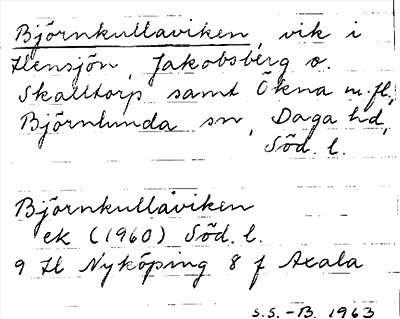 Björnkullaviken, vik i
Hensjön, Jakobsberg o.
Skalltorp samt Ökna m.fl.,
Björnlunda sn, Daga hd,
Söd. l.
Björnkullaviken
ek (1960) Söd. l.
9 H Nyköping 8 f Axala
S.S.-B. 1963